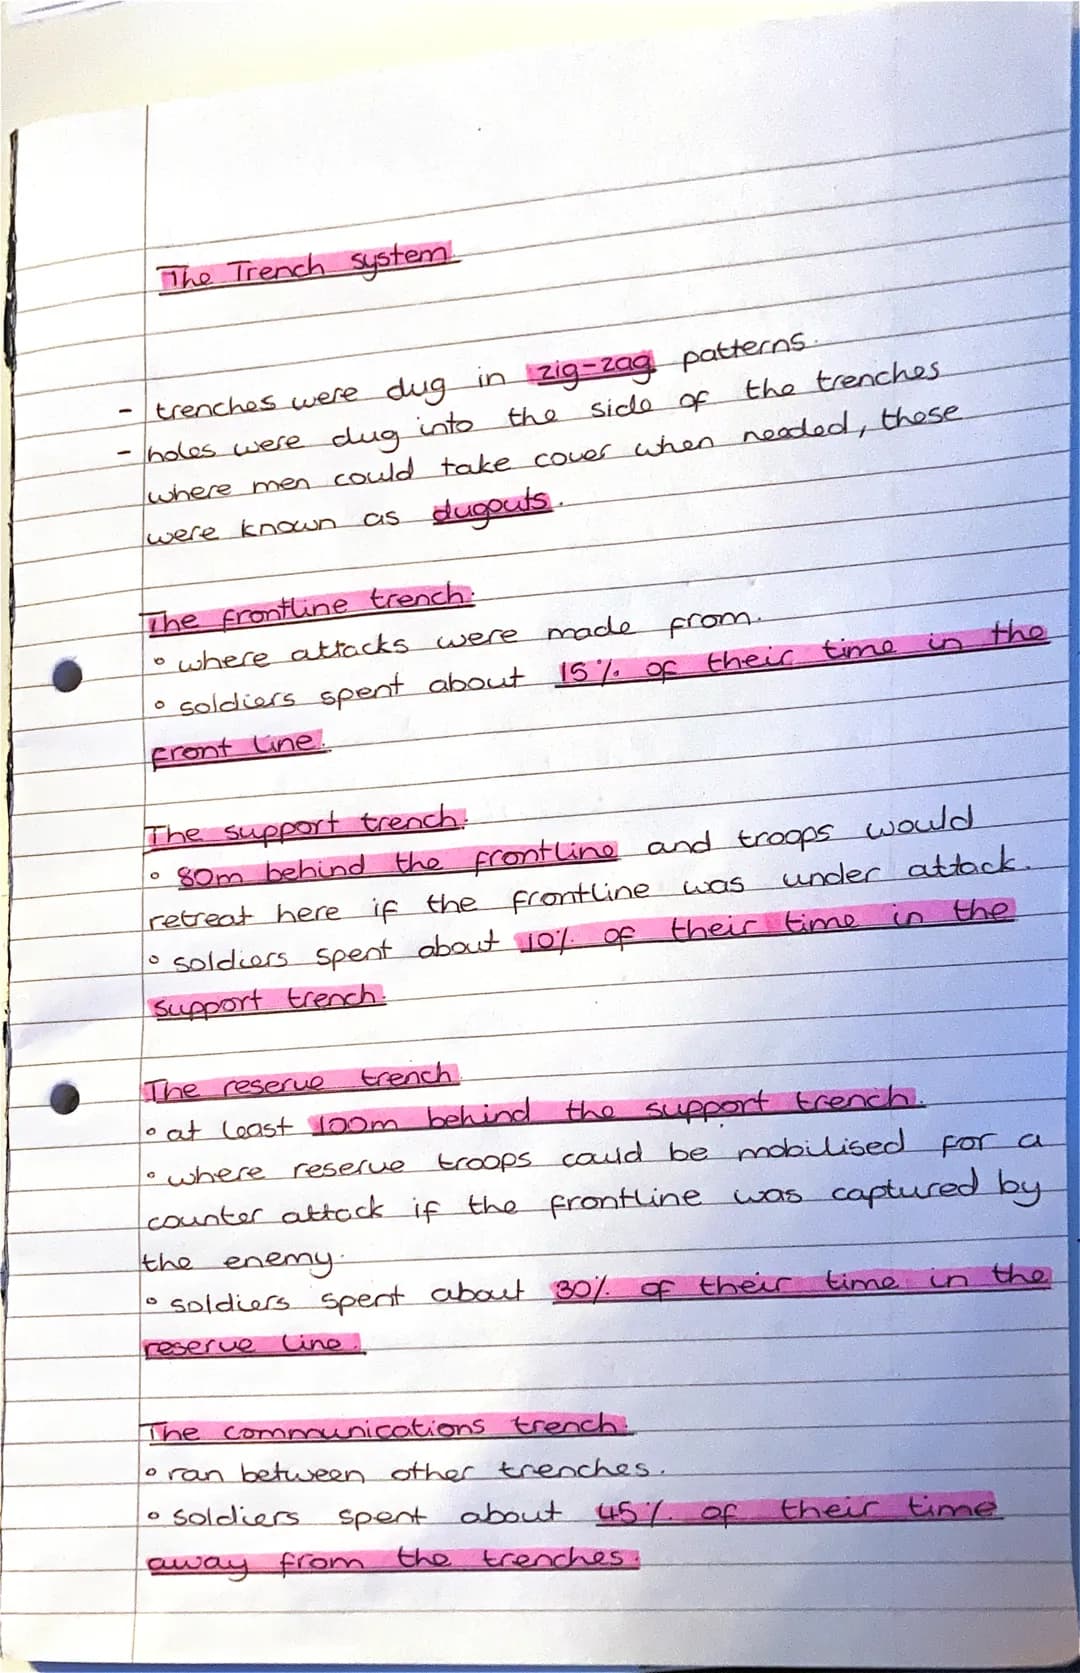 The Trench system
- trenches were dug in zig-zag patterns.
- holes were dug into the side of the trenches
where men could take cover when needed, these
were known as dugouts.
The frontline trench:
° where attacks were made from.
° soldiers spent about 15% of their time in the
front line.
The support trench:
° 80m behind the frontline and troops would
retreat here if the frontline was under attack.
° soldiers spent about 10% of their time in the
support trench.
The reserve trench
° at least 100m behind the support trench.
° where reserve troops could be mobilised for a
counter attack if the frontline was captured by
the enemy.
° soldiers spent about 30% of their time in the
reserve line.
The communications trench:
° ran between other trenches.
° soldiers spent about 45% of their time
away from the trenches.